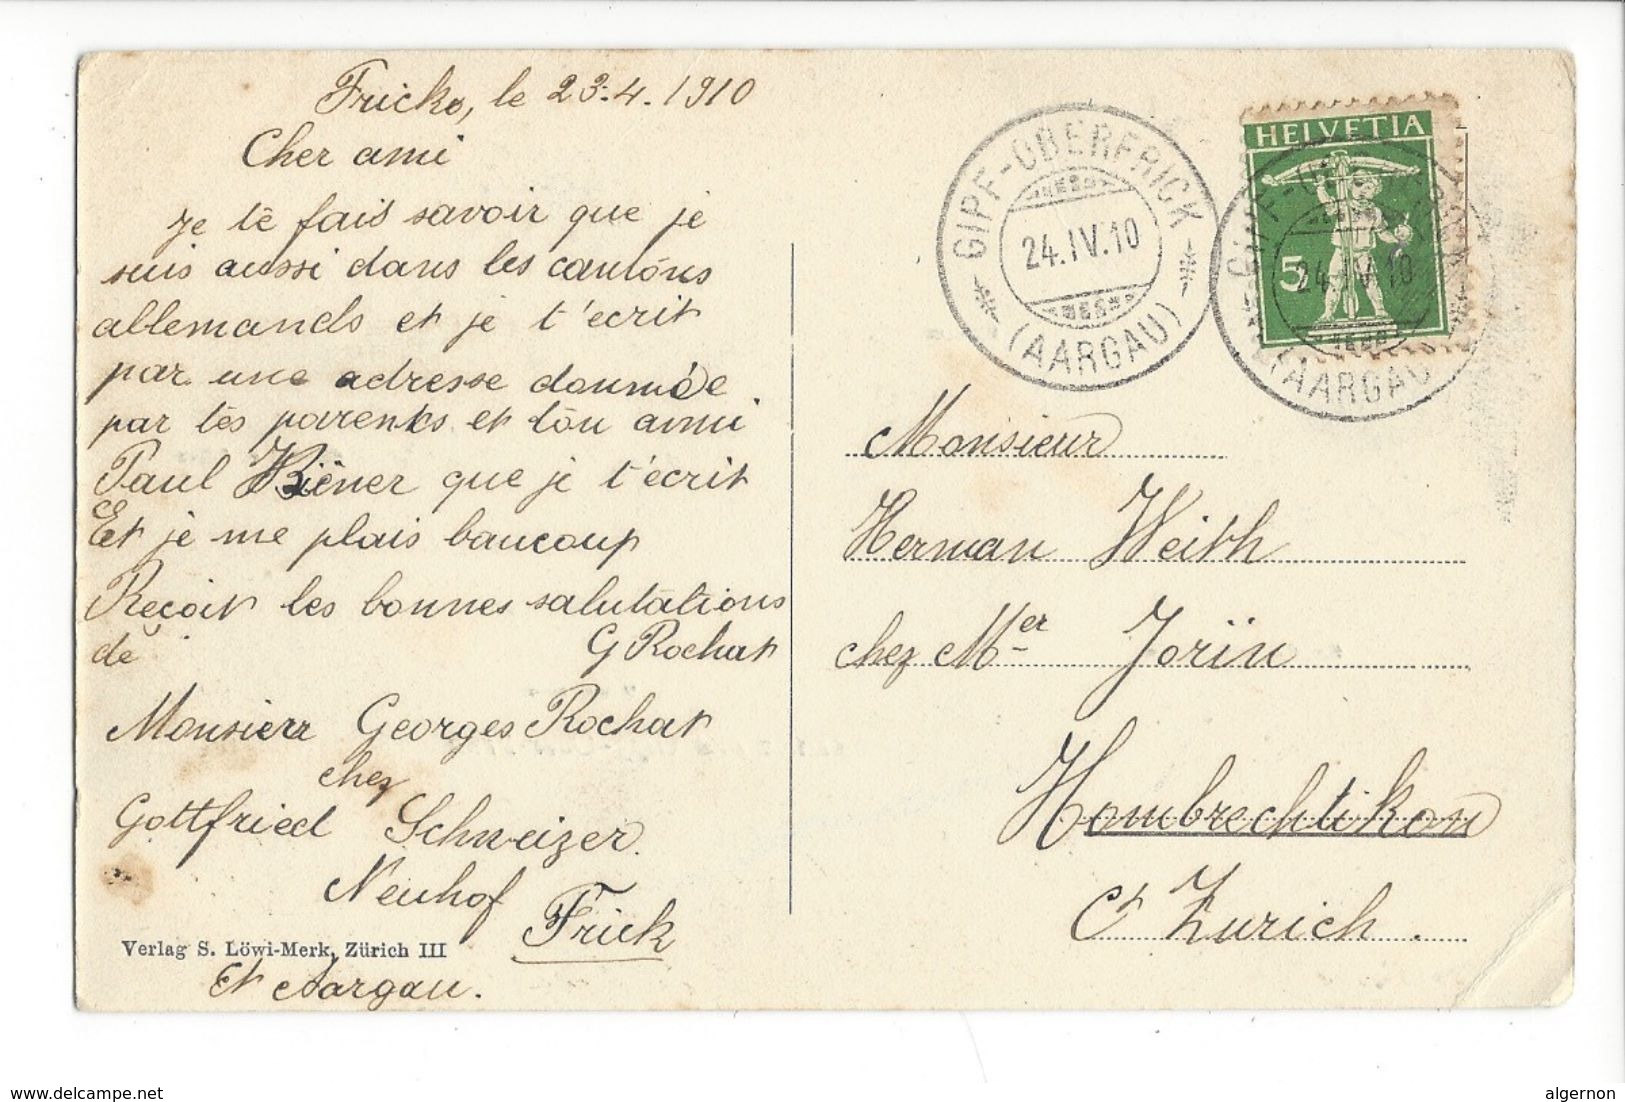 Fricks, le 23.4.1910
Cher ami
je te fais savoir que je
suis aussi dans les cantons
allemands et je t'ecrit
par une adresse donnée
par tes parents et ton ami
Paul Biéner que je t'écrit
Et je me plais baucoup
Recoit les bonnes salutations
de G Rochat
Monsieur Georges Rochat
chez
Gottfried Schweizer.
Neuhof
Frick
Verlag S. Löwi-Merk, Zürich III
Ct Aargau.
GIPF-OBERFRICK
24.IV.10
(AARGAU)
HELVETIA
5
GIPF-OBERFRICK
24.IV.10
(AARGAU)
Monsieur
Herman Weith
chez Mer Jorin
Hombrechtikon
Ct Zurich.
delcampe.net
algernon